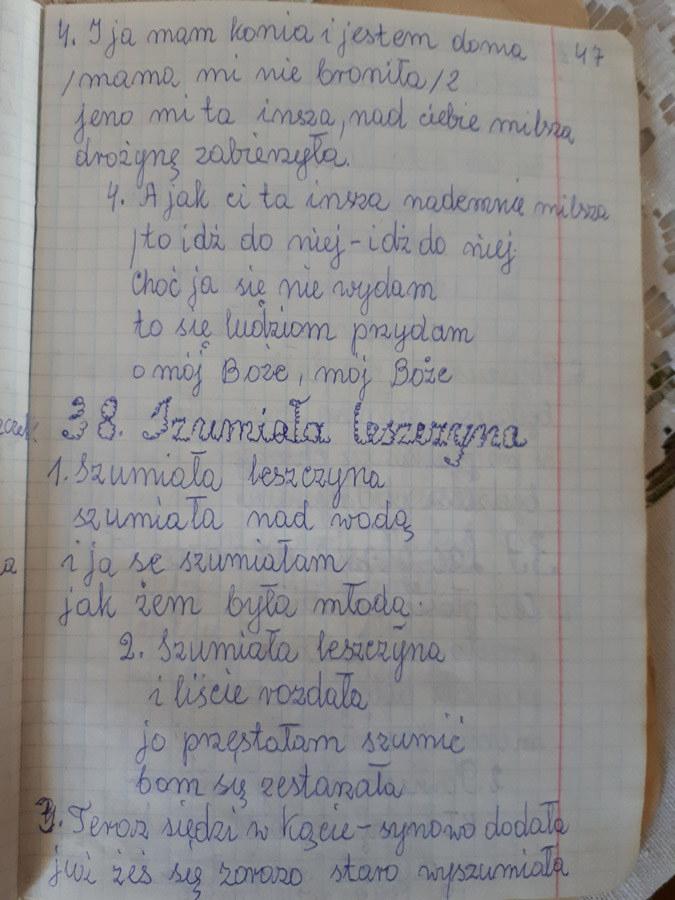 47
4. I ja mam konia i jestem doma
/mama mi nie broniła/2
jeno mi ta insza, nad ciebie milsza
drożynę zabierzyła.
4. A jak ci ta insza nademnie milsza
/to idź do niej - idź do niej
choć ja się nie wydam
to się ludziom przydam
o mój Boże, mój Boże
38. Szumiała leszczyna
1. Szumiała leszczyna
szumiała nad wodą
i ja se szumiałam
jak żem była młodą.
2. Szumiała leszczyna
i liście rozdała
jo przęstałam szumić
bom się zestarzała
3. Teroz siędzi w kącie - synowo dodała
już żeś się zorazo staro wyszumiała